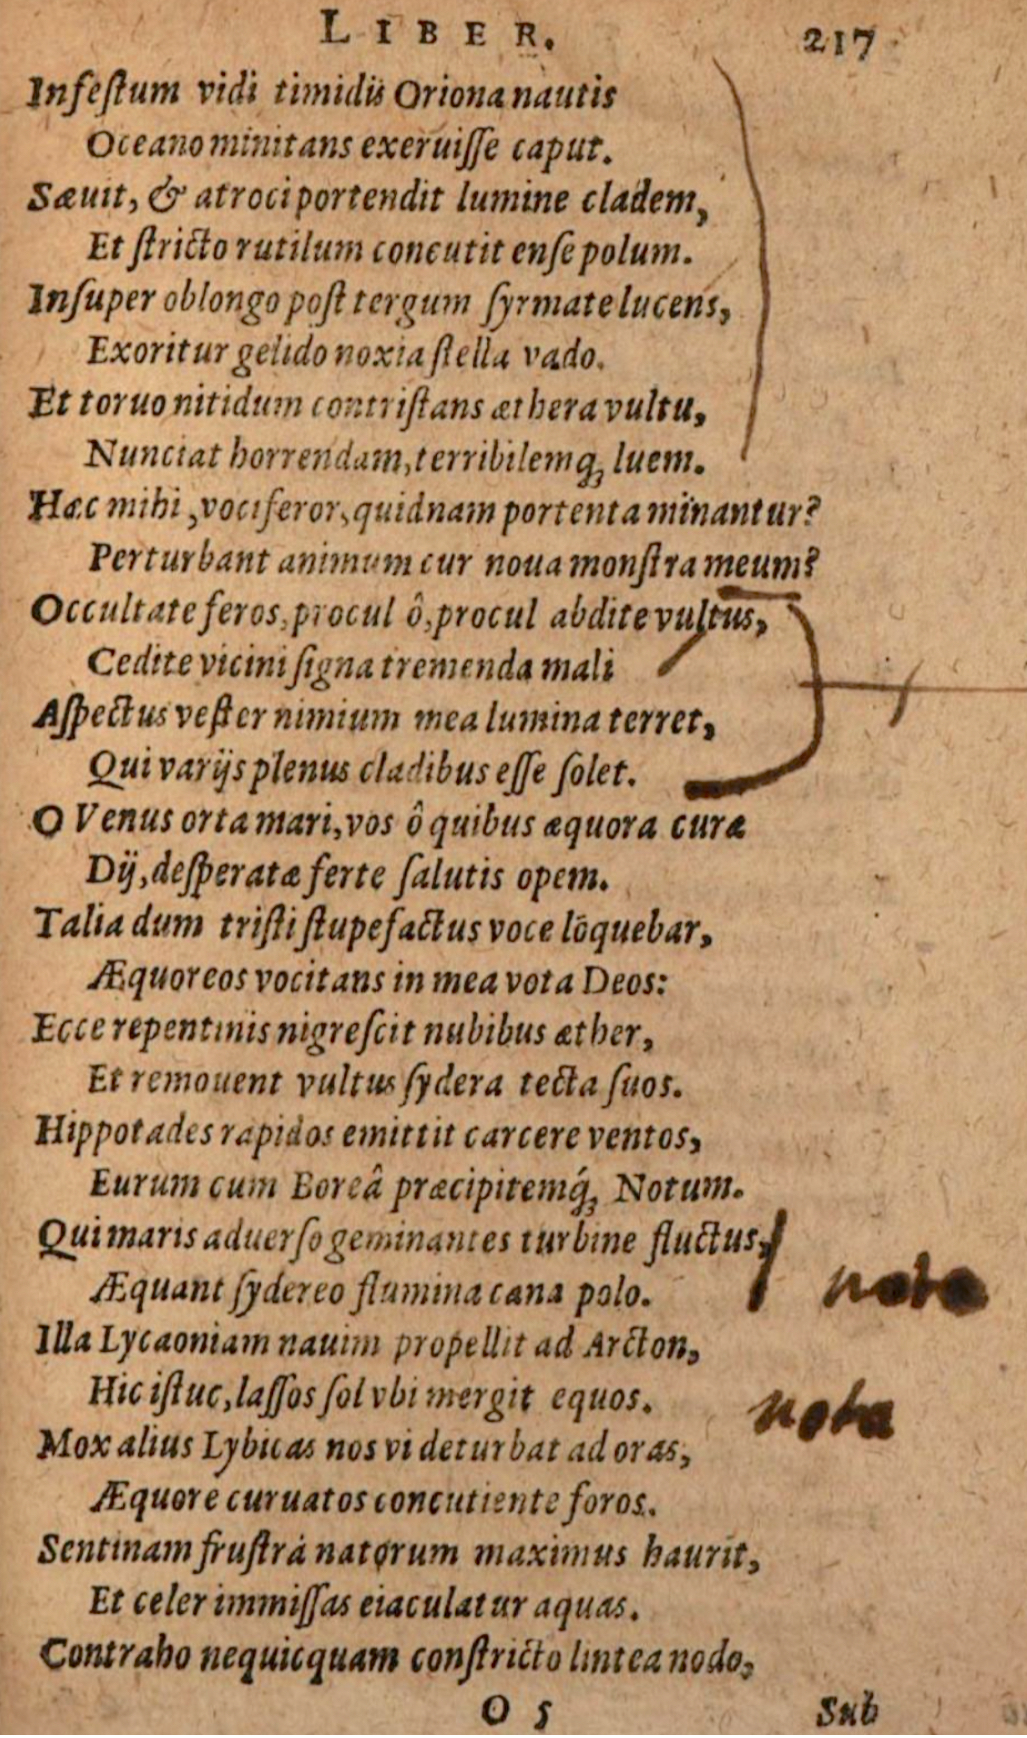 LIBER. 217
Infeſtum vidi timidis Oriona nautis
Oceano minitans exeruiſſe caput.
Sæuit, & atroci portendit lumine cladem,
Et ſtricto rutilum concutit enſe polum.
Inſuper oblongo poſt tergum ſyrmate lucens,
Exoritur gelido noxia ſtella vado.
Et toruo nitidum contriſtans æthera vultu,
Nunciat horrendam, terribilemq́; luem.
Hæc mihi, vociferor, quidnam portenta minantur?
Perturbant animum cur noua monſtra meum?
Occultate feros, procul ô, procul abdite vultus,
Cedite vicini ſigna tremenda mali
Aſpectus veſter nimium mea lumina terret,
Qui varijs plenus cladibus eſſe ſolet.
O Venus orta mari, vos ô quibus æquora curæ
Dij, deſperatæ ferte ſalutis opem.
Talia dum triſti ſtupefactus voce lōquebar,
Æquoreos vocitans in mea vota Deos:
Ecce repentinis nigreſcit nubibus æther,
Et remouent vultus ſydera tecta ſuos.
Hippotades rapidos emittit carcere ventos,
Eurum cum Boreâ præcipitemq́; Notum.
Qui maris aduerſo geminantes turbine fluctus,
nota
Æquant ſydereo flumina cana polo.
Illa Lycaoniam nauim propellit ad Arcton,
Hic iſtuc, laſſos ſol vbi mergit equos.
nota
Mox alius Lybicas nos vi deturbat ad oras,
Æquore curuatos concutiente foros.
Sentinam fruſtrà natorum maximus haurit,
Et celer immiſſas eiaculatur aquas.
Contraho nequicquam conſtricto lintea nodo,
O 5 Sub